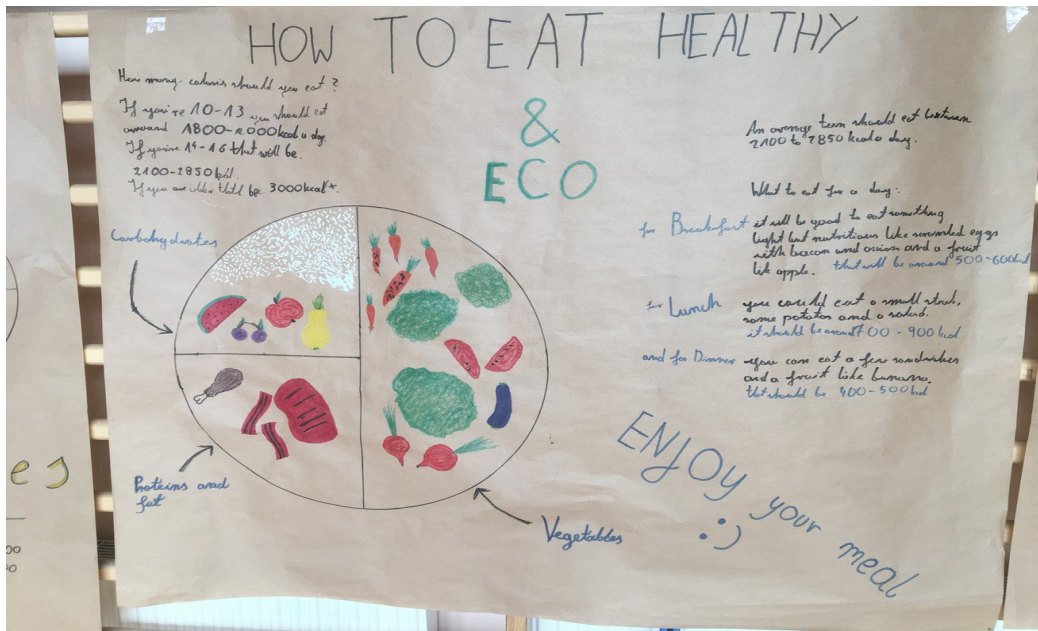 HOW TO EAT HEALTHY
& 
ECO
How many calories should you eat?
If you're 10-13 you should eat
around 1800-2000kcal a day.
If you're 14-16 that will be
2100-2850kcal.
If you are older that'd be 3000kcal+.
An average teen should eat between
2100 to 2850 kcal a day.
What to eat for a day:
for Breakfast it will be good to eat something
light but nutritious like scrambled eggs
with bacon and onion and a fruit
like apple. that will be around 500-600kcal
for Lunch you could eat a small steak,
some potatos and a salad.
it should be around 00-900 kcal
and for Dinner you can eat a few sandwiches
and a fruit like banana.
that should be 400-500kcal
Carbohydrates
Proteins and
fat
Vegetables
ENJOY your meal
:)
es
00
00